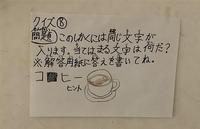 クイズ⑧
問題 このしかくには同じ文字が
入ります。当てはまる文字は何だ?
※解答用紙に答えを書いてね。
コ□ヒ□
ヒント